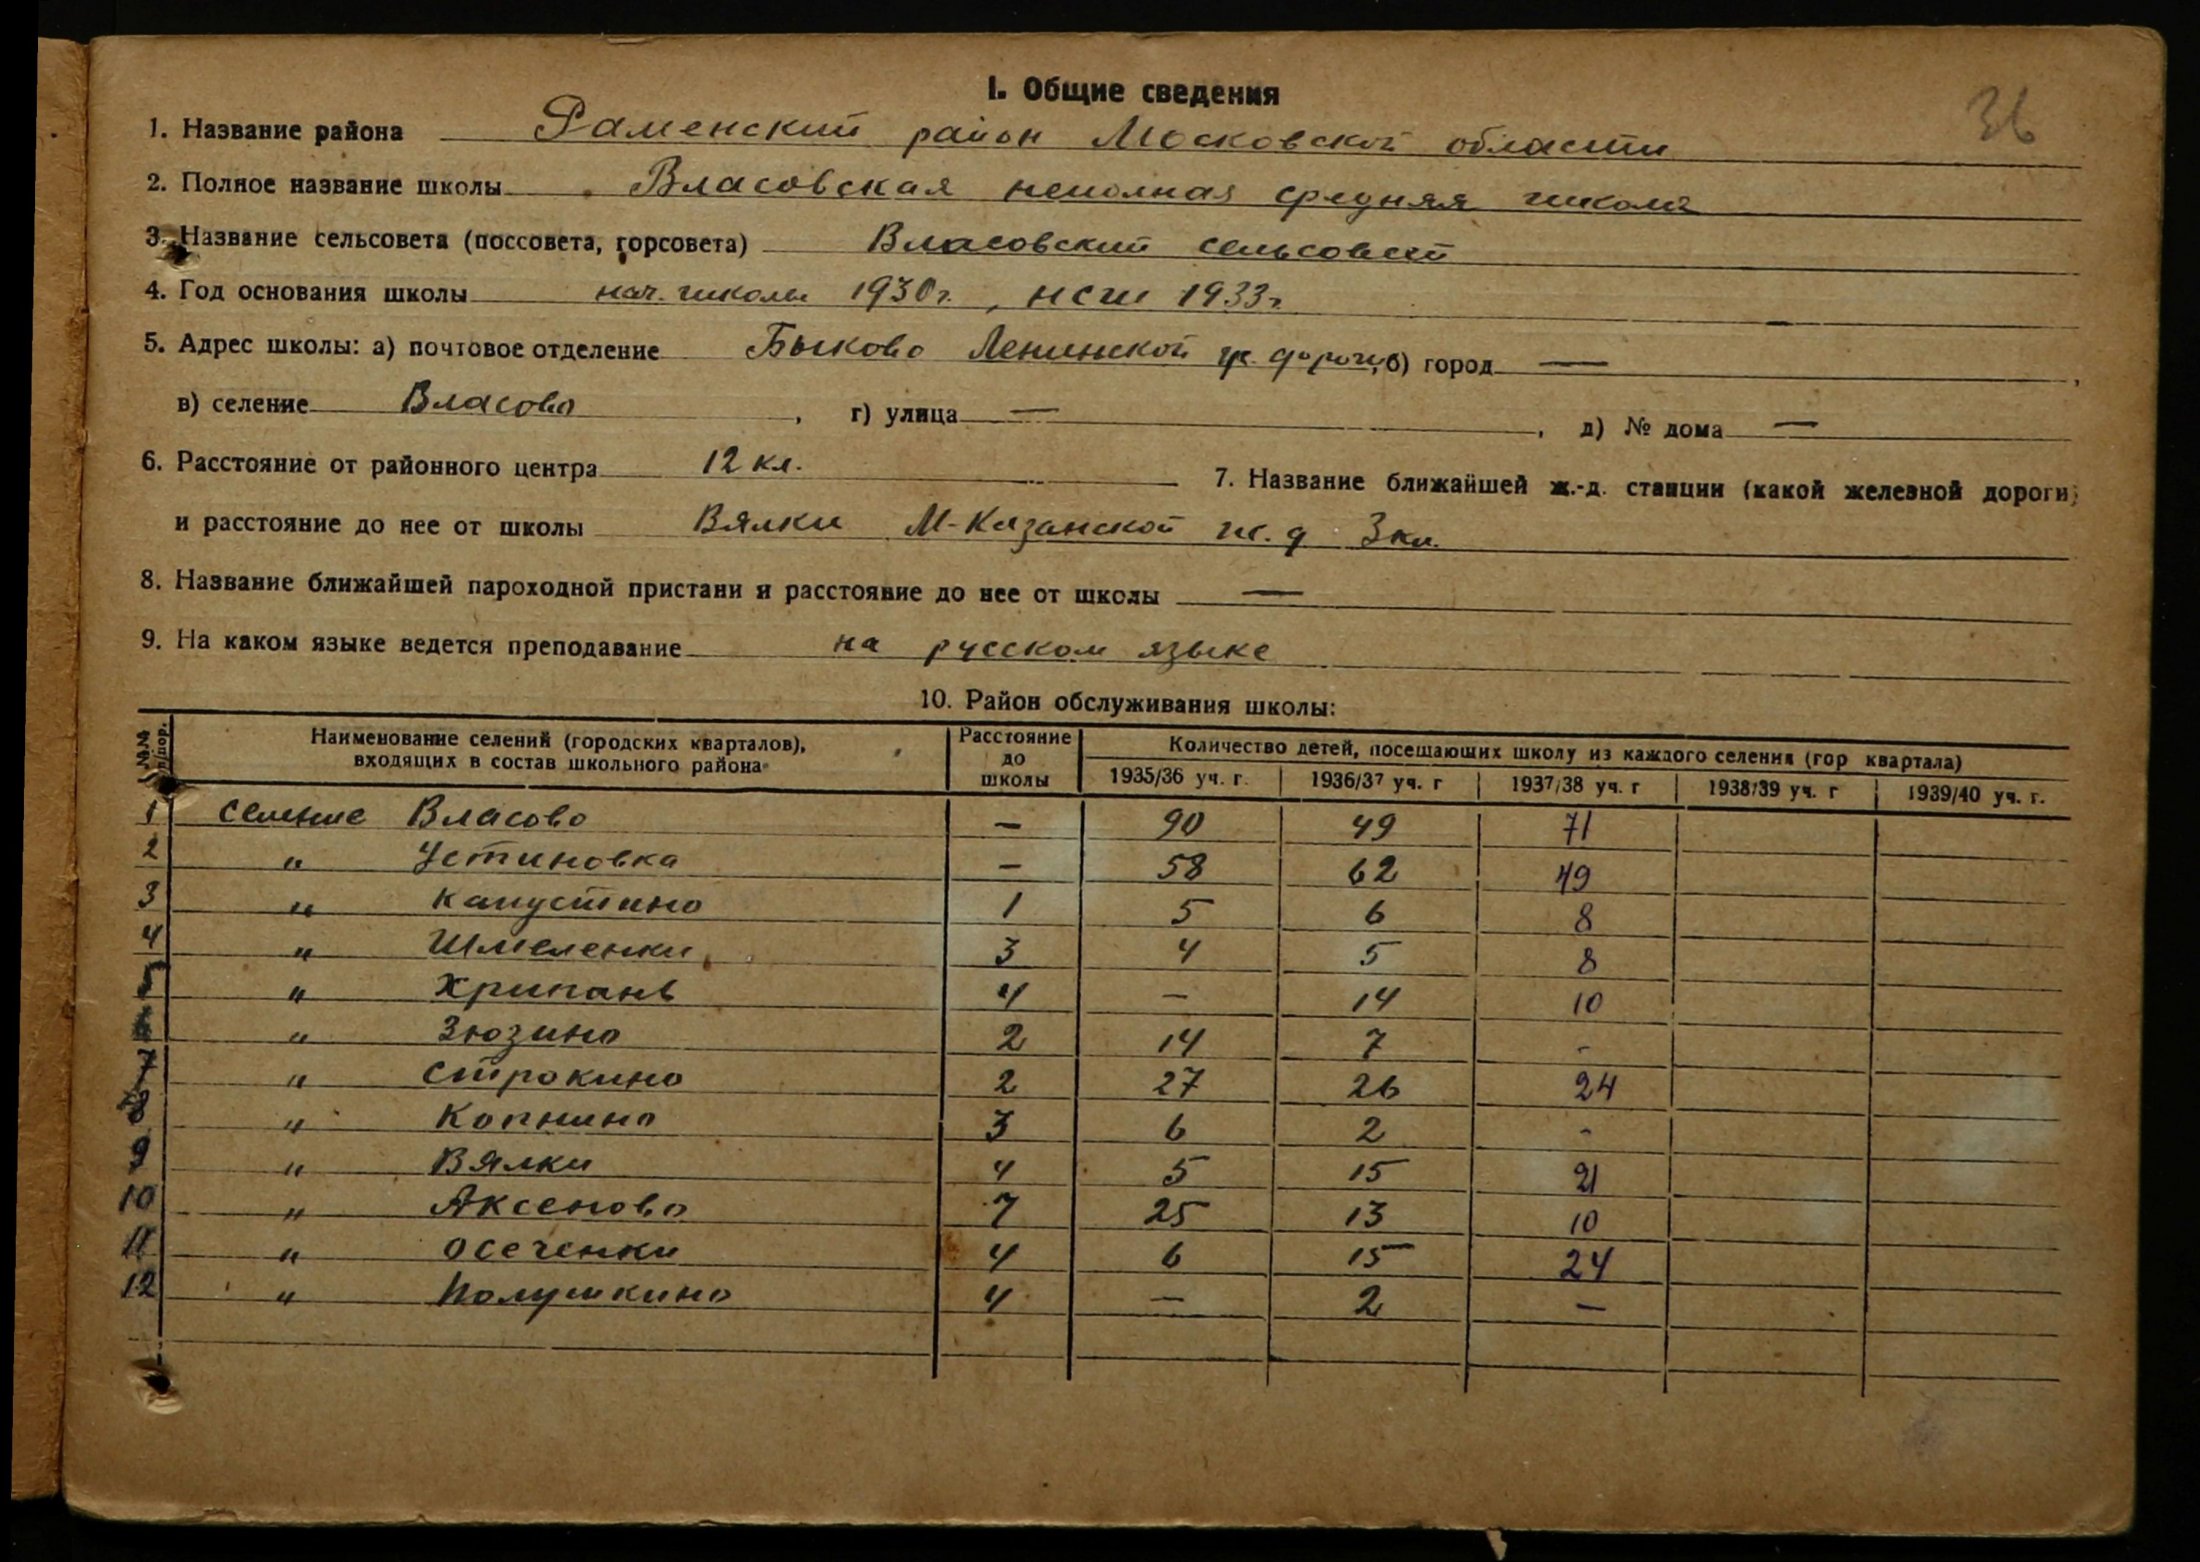 I. Общие сведения
36
1. Название района Раменский район Московской области
2. Полное название школы Власовская неполная средняя школа
3. Название сельсовета (поссовета, горсовета) Власовский сельсовет
4. Год основания школы нач. школы 1930г., нсш 1933г
5. Адрес школы: а) почтовое отделение Быково Ленинской ж. дороги, б) город — ,
в) селение Власово , г) улица — , д) № дома —
6. Расстояние от районного центра 12 кл. 7. Название ближайшей ж.-д. станции (какой железной дороги)
и расстояние до нее от школы Вялки М-Казанской ж. д 3 кл.
8. Название ближайшей пароходной пристани и расстояние до нее от школы —
9. На каком языке ведется преподавание на русском языке
10. Район обслуживания школы:
№№ п/пор. Наименование селений (городских кварталов), входящих в состав школьного района Расстояние до школы Количество детей, посещающих школу из каждого селения (гор квартала)
1935/36 уч. г. 1936/37 уч. г 1937/38 уч. г 1938/39 уч. г 1939/40 уч. г.
1 селение Власово — 90 49 71
2 " Устиновка — 58 62 49
3 " Капустино 1 5 6 8
4 " Шмеленки 3 4 5 8
5 " Хрипань 4 — 14 10
6 " Зюзино 2 14 7 -
7 " Строкино 2 27 26 24
8 " Копнино 3 6 2 -
9 " Вялки 4 5 15 21
10 " Аксеново 7 25 13 10
11 " Осеченки 4 6 15 24
12 " Полушкино 4 — 2 —